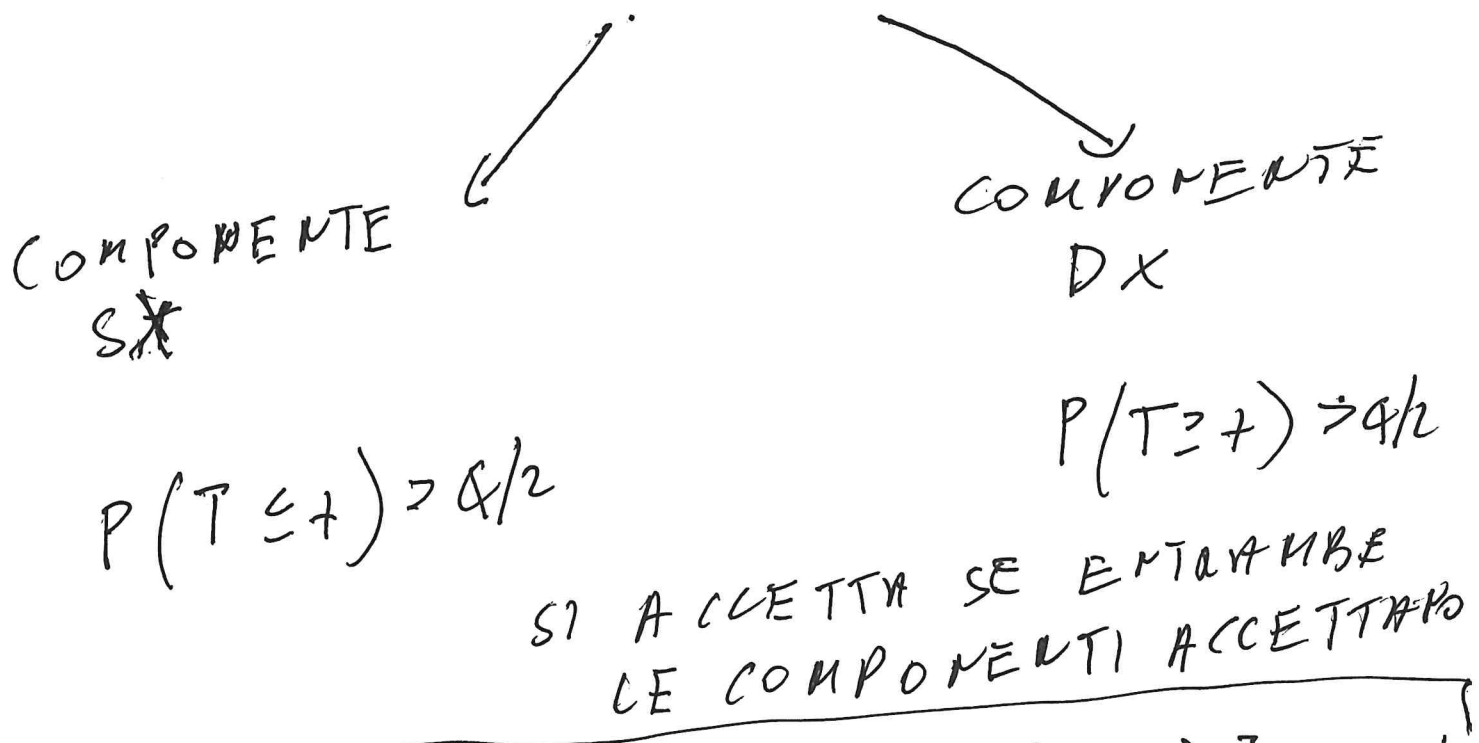 COMPONENTE
SX
COMPONENTE
DX
P(T ≤ t) > α/2
P(T ≥ t) > α/2
SI ACCETTA SE ENTRAMBE
LE COMPONENTI ACCETTANO